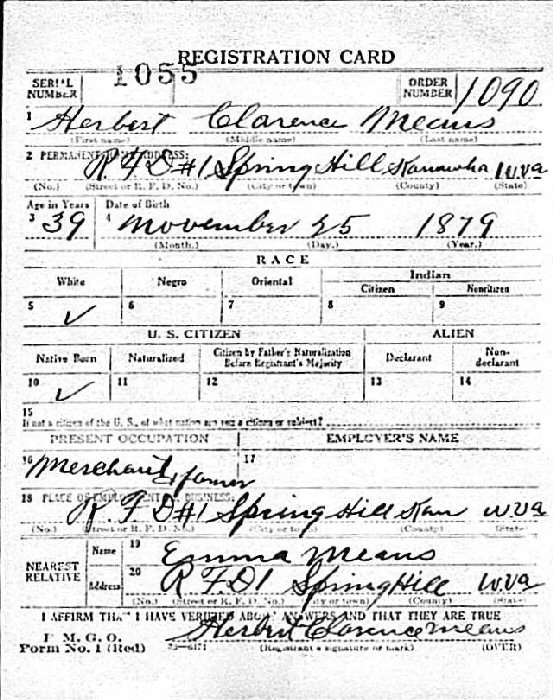 REGISTRATION CARD
SERIAL NUMBER 1055 ORDER NUMBER 1090
1 Herbert Clarence Means
(First name) (Middle name) (Last name)
2 PERMANENT HOME ADDRESS:
R F D #1 Spring Hill Kanawha W Va
(No.) (Street or R. F. D. No.) (City or town) (County) (State)
Age in Years Date of Birth
3 39 4 November 25 1879
(Month.) (Day.) (Year.)
RACE
White Negro Oriental Indian
Citizen Noncitizen
5 ✓ 6 7 8 9
U. S. CITIZEN ALIEN
Native Born Naturalized Citizen by Father's Naturalization Before Registrant's Majority Declarant Non-declarant
10 ✓ 11 12 13 14
15
If not a citizen of the U. S., of what nation are you a citizen or subject?
PRESENT OCCUPATION EMPLOYER'S NAME
16 Merchant farmer 17
18 PLACE OF EMPLOYMENT OR BUSINESS:
R. F D #1 Spring Hill Kan W Va
(No.) (Street or R. F. D. No.) (City or town) (County) (State)
NEAREST RELATIVE Name 19 Emma Means
Address 20 R F D 1 Spring Hill W. Va
(No.) (Street or R. F. D. No.) (City or town) (County) (State)
I AFFIRM THAT I HAVE VERIFIED ABOVE ANSWERS AND THAT THEY ARE TRUE
P. M. G. O.
Form No. 1 (Red) Herbert Clarence Means
(Registrant's signature or mark) (OVER)